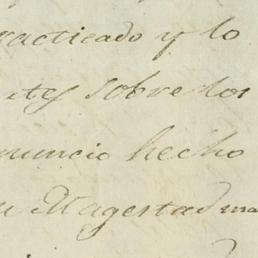 racticado y lo
sobre los
nuncio hecho
Magestad ma